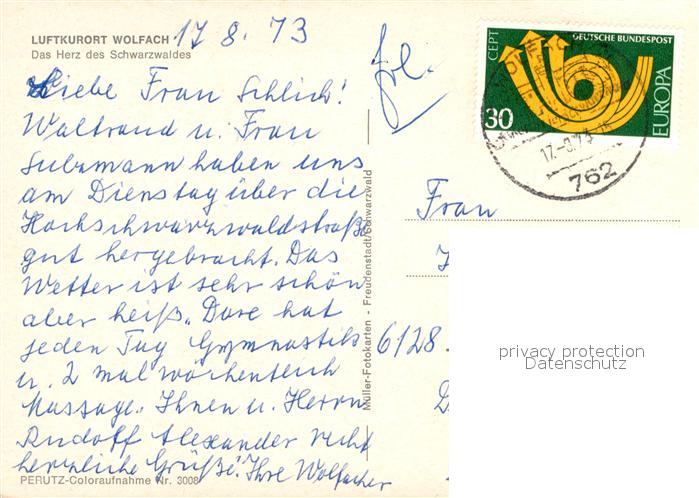 LUFTKURORT WOLFACH 17 8. 73
Das Herz des Schwarzwaldes
Liebe Frau Schlich!
Waltraud u. Frau
Sulzmann haben uns
am Dienstag über die
Hochschwarzwaldstraße
gut hergebracht. Das
Wetter ist sehr schön
aber heiß. Dore hat
jeden Tag Gymnastik
u. 2 mal wöchentlich
Massage. Ihnen u. Herrn
Rudolf Alexander recht
herzliche Grüße! Ihre Wolfacher
PERUTZ-Coloraufnahme Nr. 3008
Müller-Fotokarten - Freudenstadt/Schwarzwald
CEPT
DEUTSCHE BUNDESPOST
30
EUROPA
17.-8.73
762
Frau
6128
privacy protection
Datenschutz